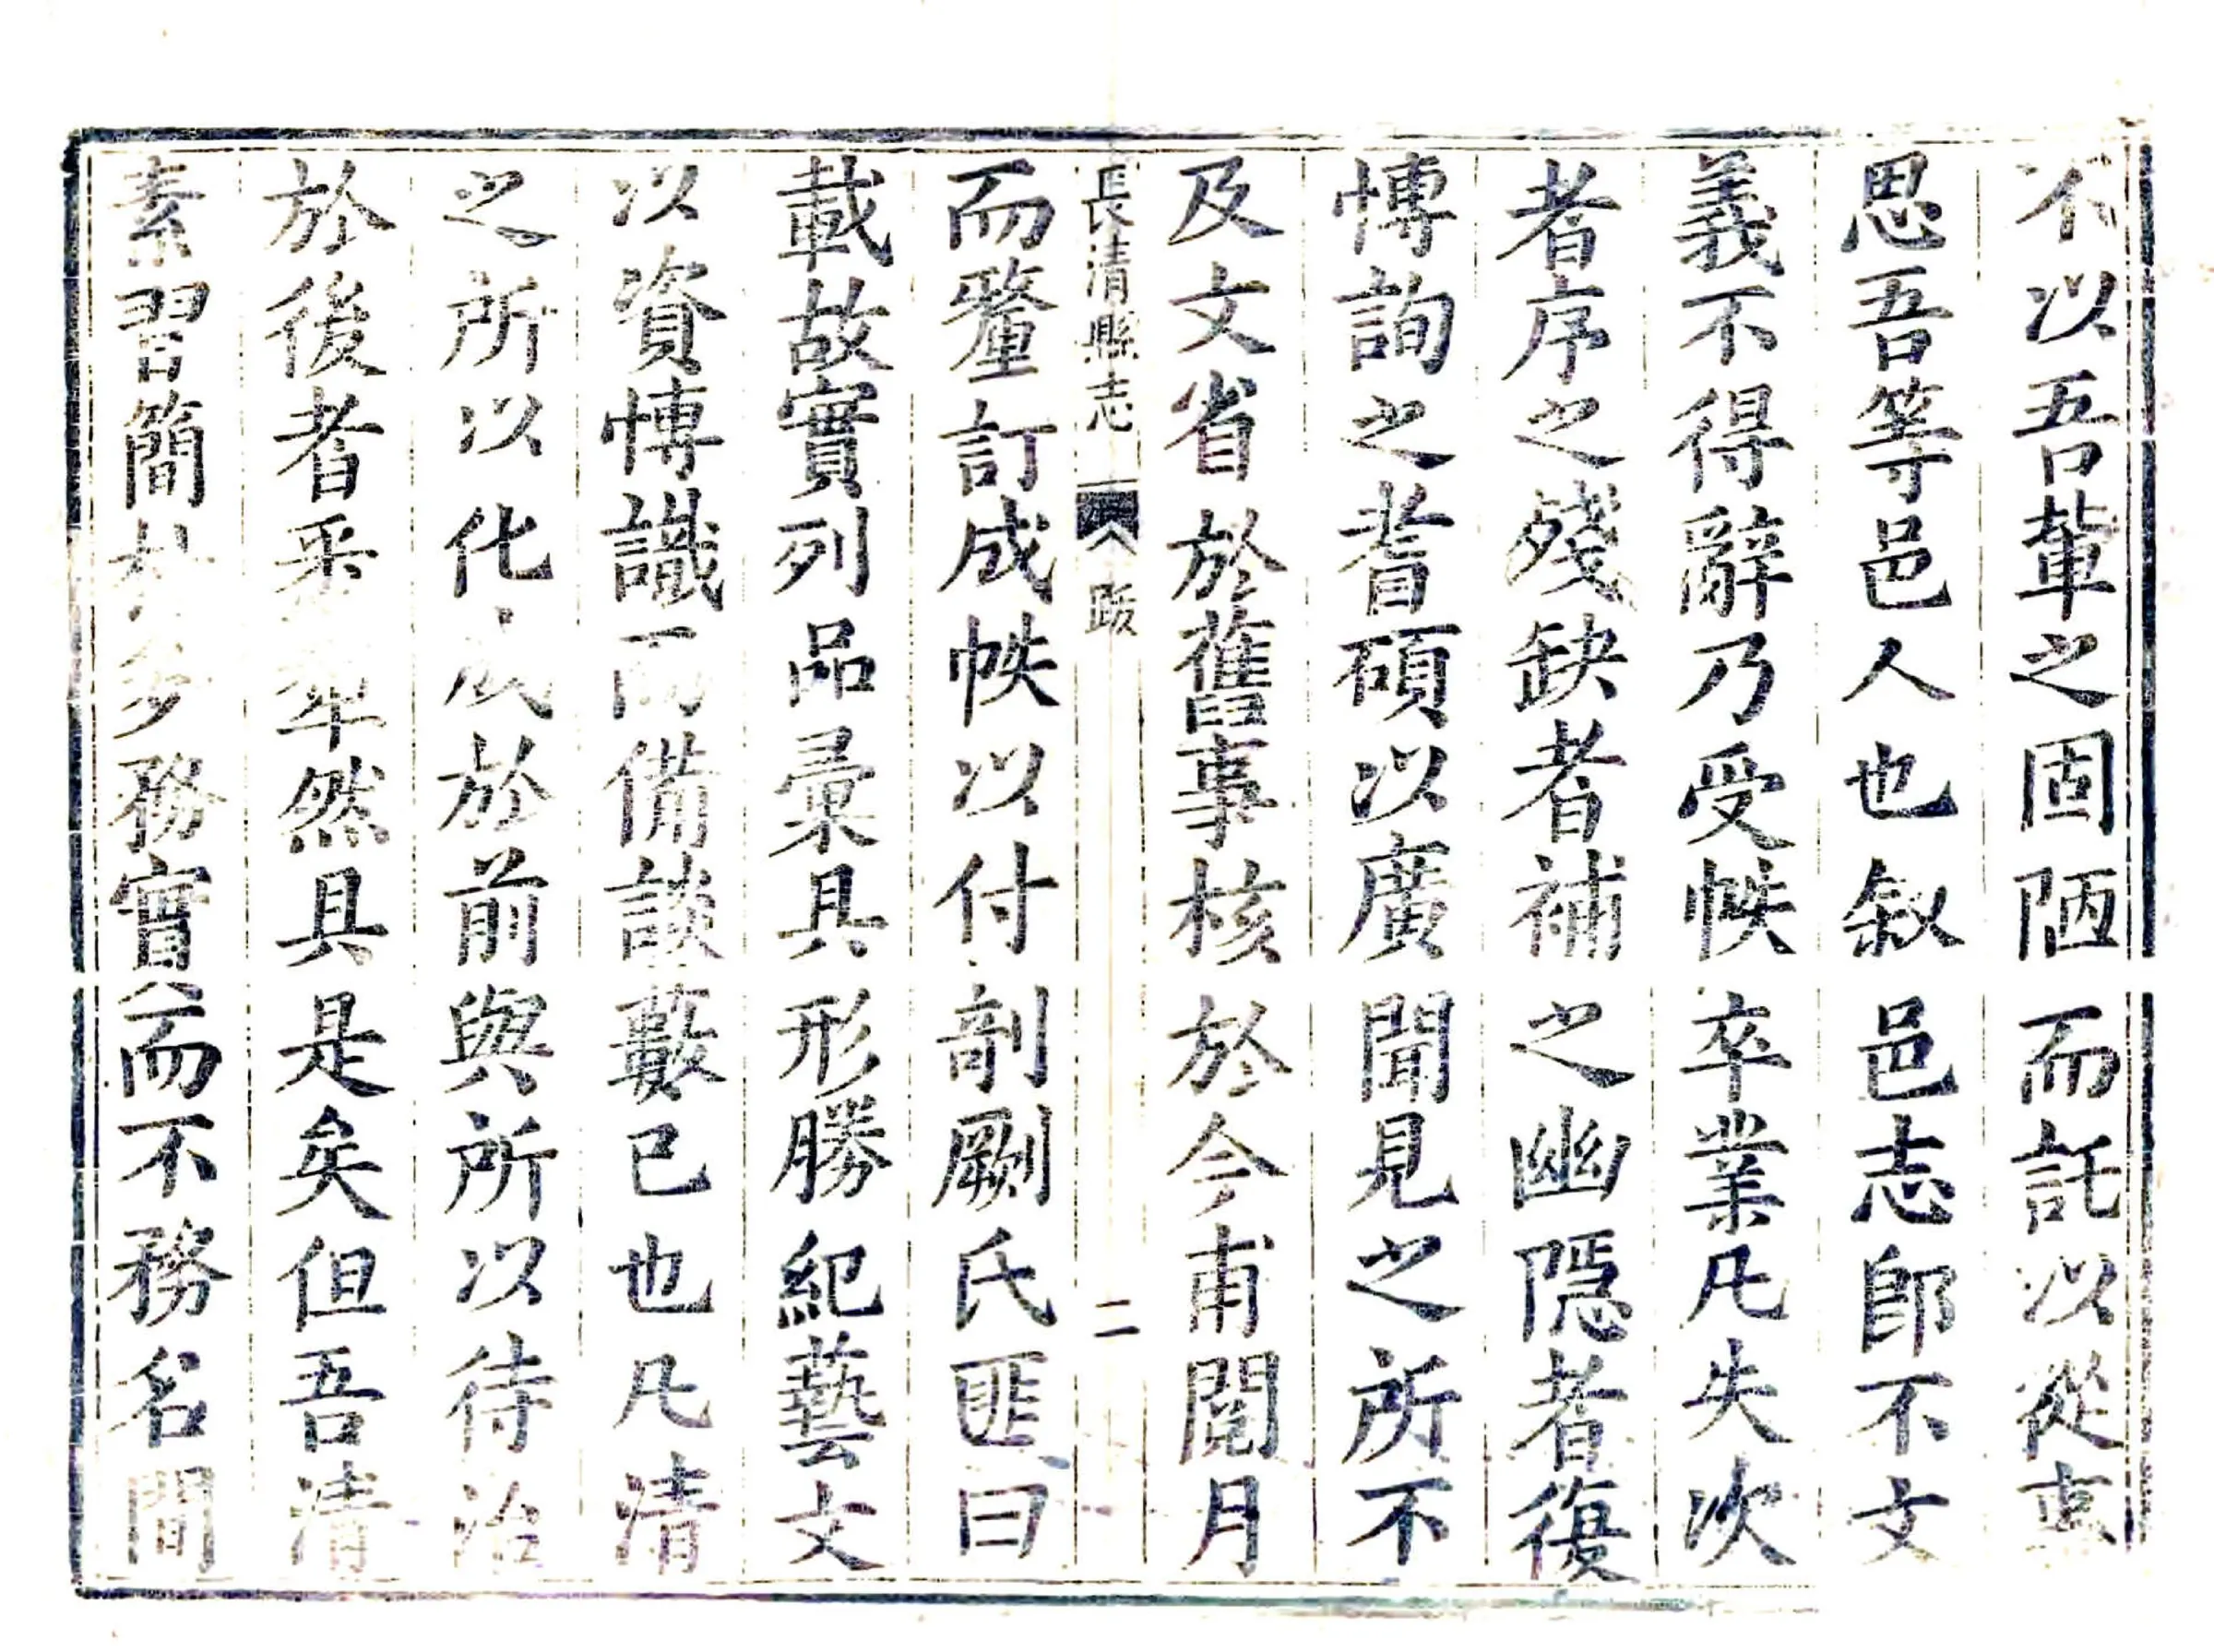 不以吾輩之固陋而託以從事
思吾等邑人也叙邑志即不文
義不得辭乃受帙卒業凡失次
者序之殘缺者補之幽隱者復
愽詢之耆碩以廣聞見之所不
及文省於舊事核於今甫閱月
長清縣志 跋 二
而釐訂成帙以付剞劂氏匪曰
載故實列品彙具形勝紀藝文
以資愽識而備談藪已也凡清
之所以化成於前與所以待治
於後者釆然具是矣但吾清
素習簡多務實而不務名間